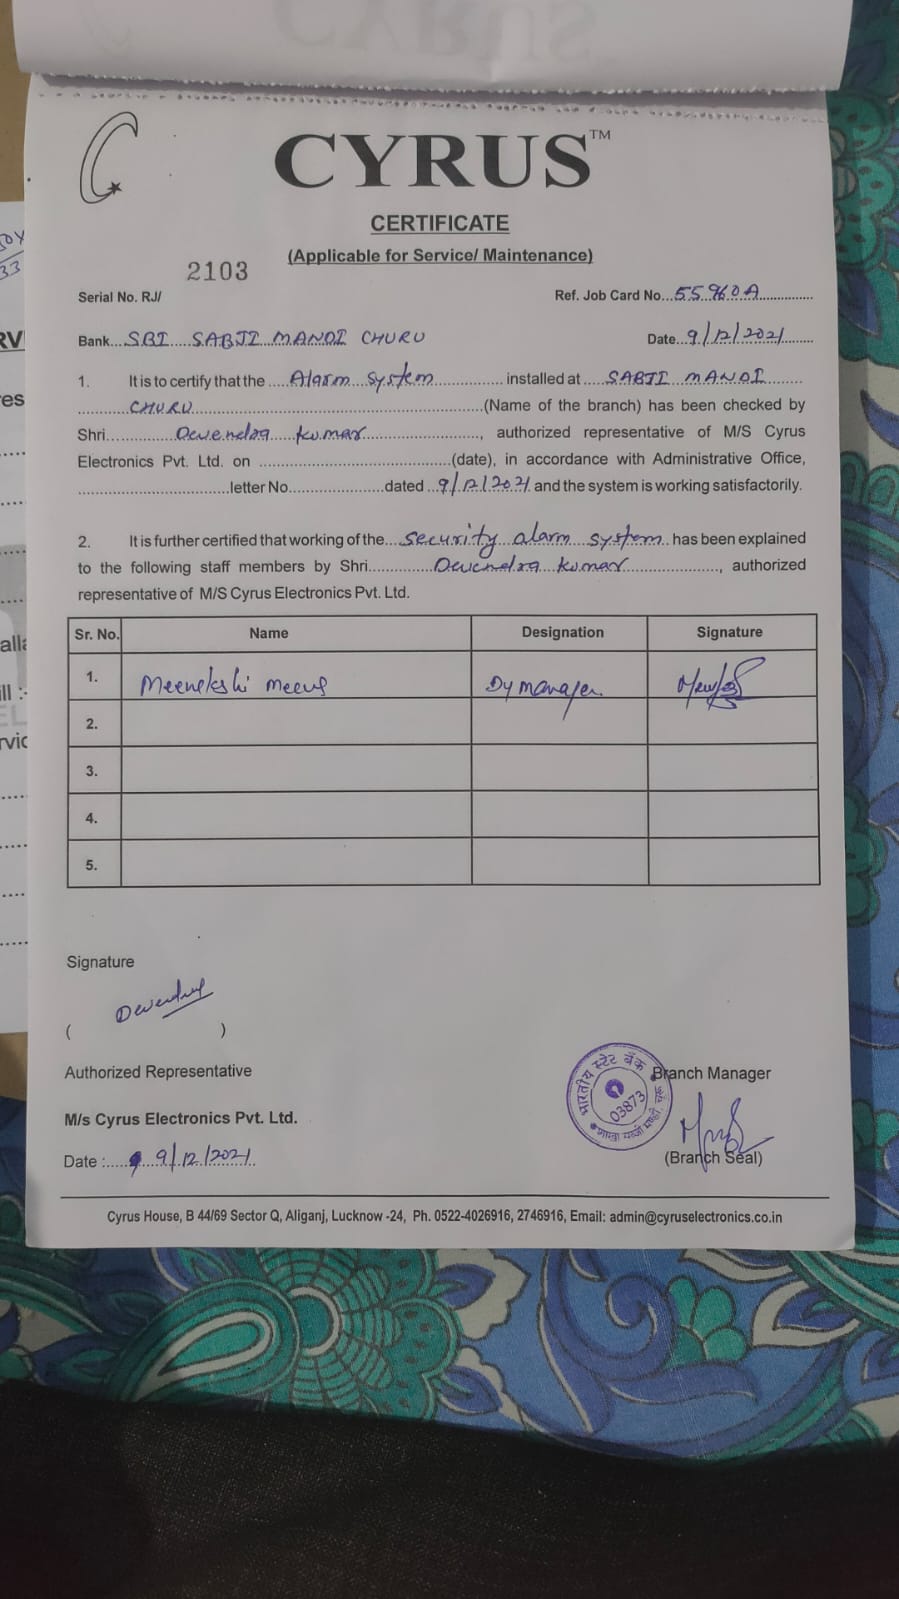 CYRUS™
CERTIFICATE
(Applicable for Service/ Maintenance)
Serial No. RJ/ 2103
Ref. Job Card No...55960A
Bank...SBI SABJI MANDI CHURU
Date...9/12/2021
1. It is to certify that the....Alarm system....installed at....SABJI MANDI
CHURU....(Name of the branch) has been checked by
Shri....Devendra Kumar...., authorized representative of M/S Cyrus
Electronics Pvt. Ltd. on ....(date), in accordance with Administrative Office,
....letter No....dated..9/12/2021 and the system is working satisfactorily.
2. It is further certified that working of the...security alarm system..has been explained
to the following staff members by Shri....Devendra Kumar...., authorized
representative of M/S Cyrus Electronics Pvt. Ltd.
Sr. No. Name Designation Signature
1. Meenekshi Dy manager
2.
3.
4.
5.
Signature
( )
Authorized Representative
M/s Cyrus Electronics Pvt. Ltd.
Date :....9/12/2021
भारतीय स्टेट बैंक
03873
Branch Manager
(Branch Seal)
Cyrus House, B 44/69 Sector Q, Aliganj, Lucknow -24, Ph. 0522-4026916, 2746916, Email: admin@cyruselectronics.co.in